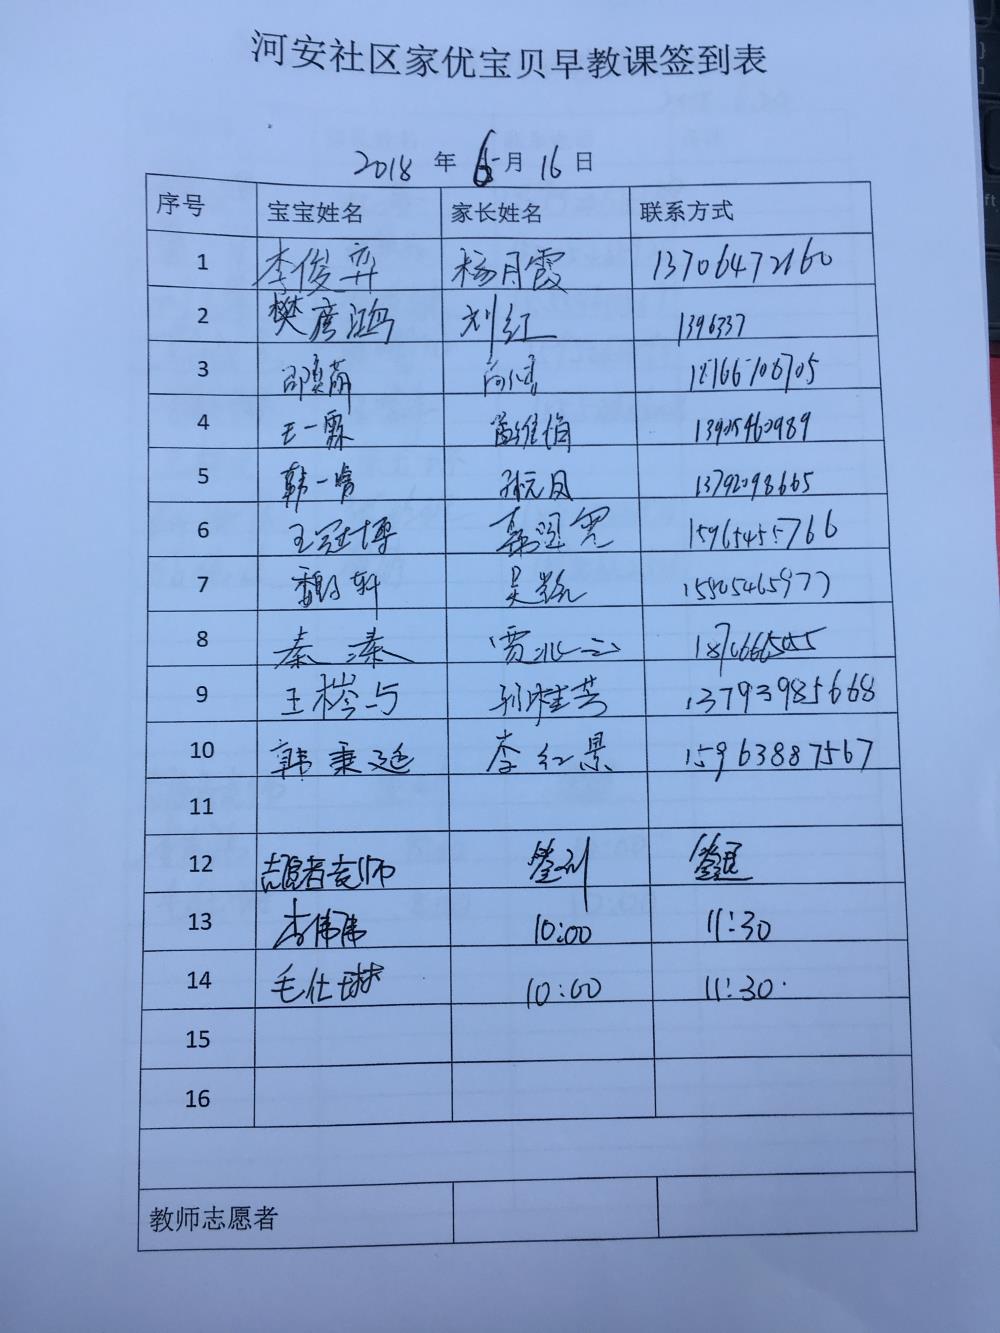 河安社区家优宝贝早教课签到表
2018 年 6 月 16 日
序号 宝宝姓名 家长姓名 联系方式
1 李俊弈 杨月霞 13706472160
2 樊彦鸿 刘红 1396337
3 18766708705
4 王一霖 13905460989
5 韩一 孙元凤 13792098665
6 王冠博 15965455766
7 轩 吴 15805465977
8 秦溱 贾
9 王梣与 孙桂芳 13793985668
10 韩秉延 李红景 15963887567
11
12 志愿者老师 签到 签退
13 李伟伟 10:00 11:30
14 毛仕琳 10:00 11:30
15
16
教师志愿者